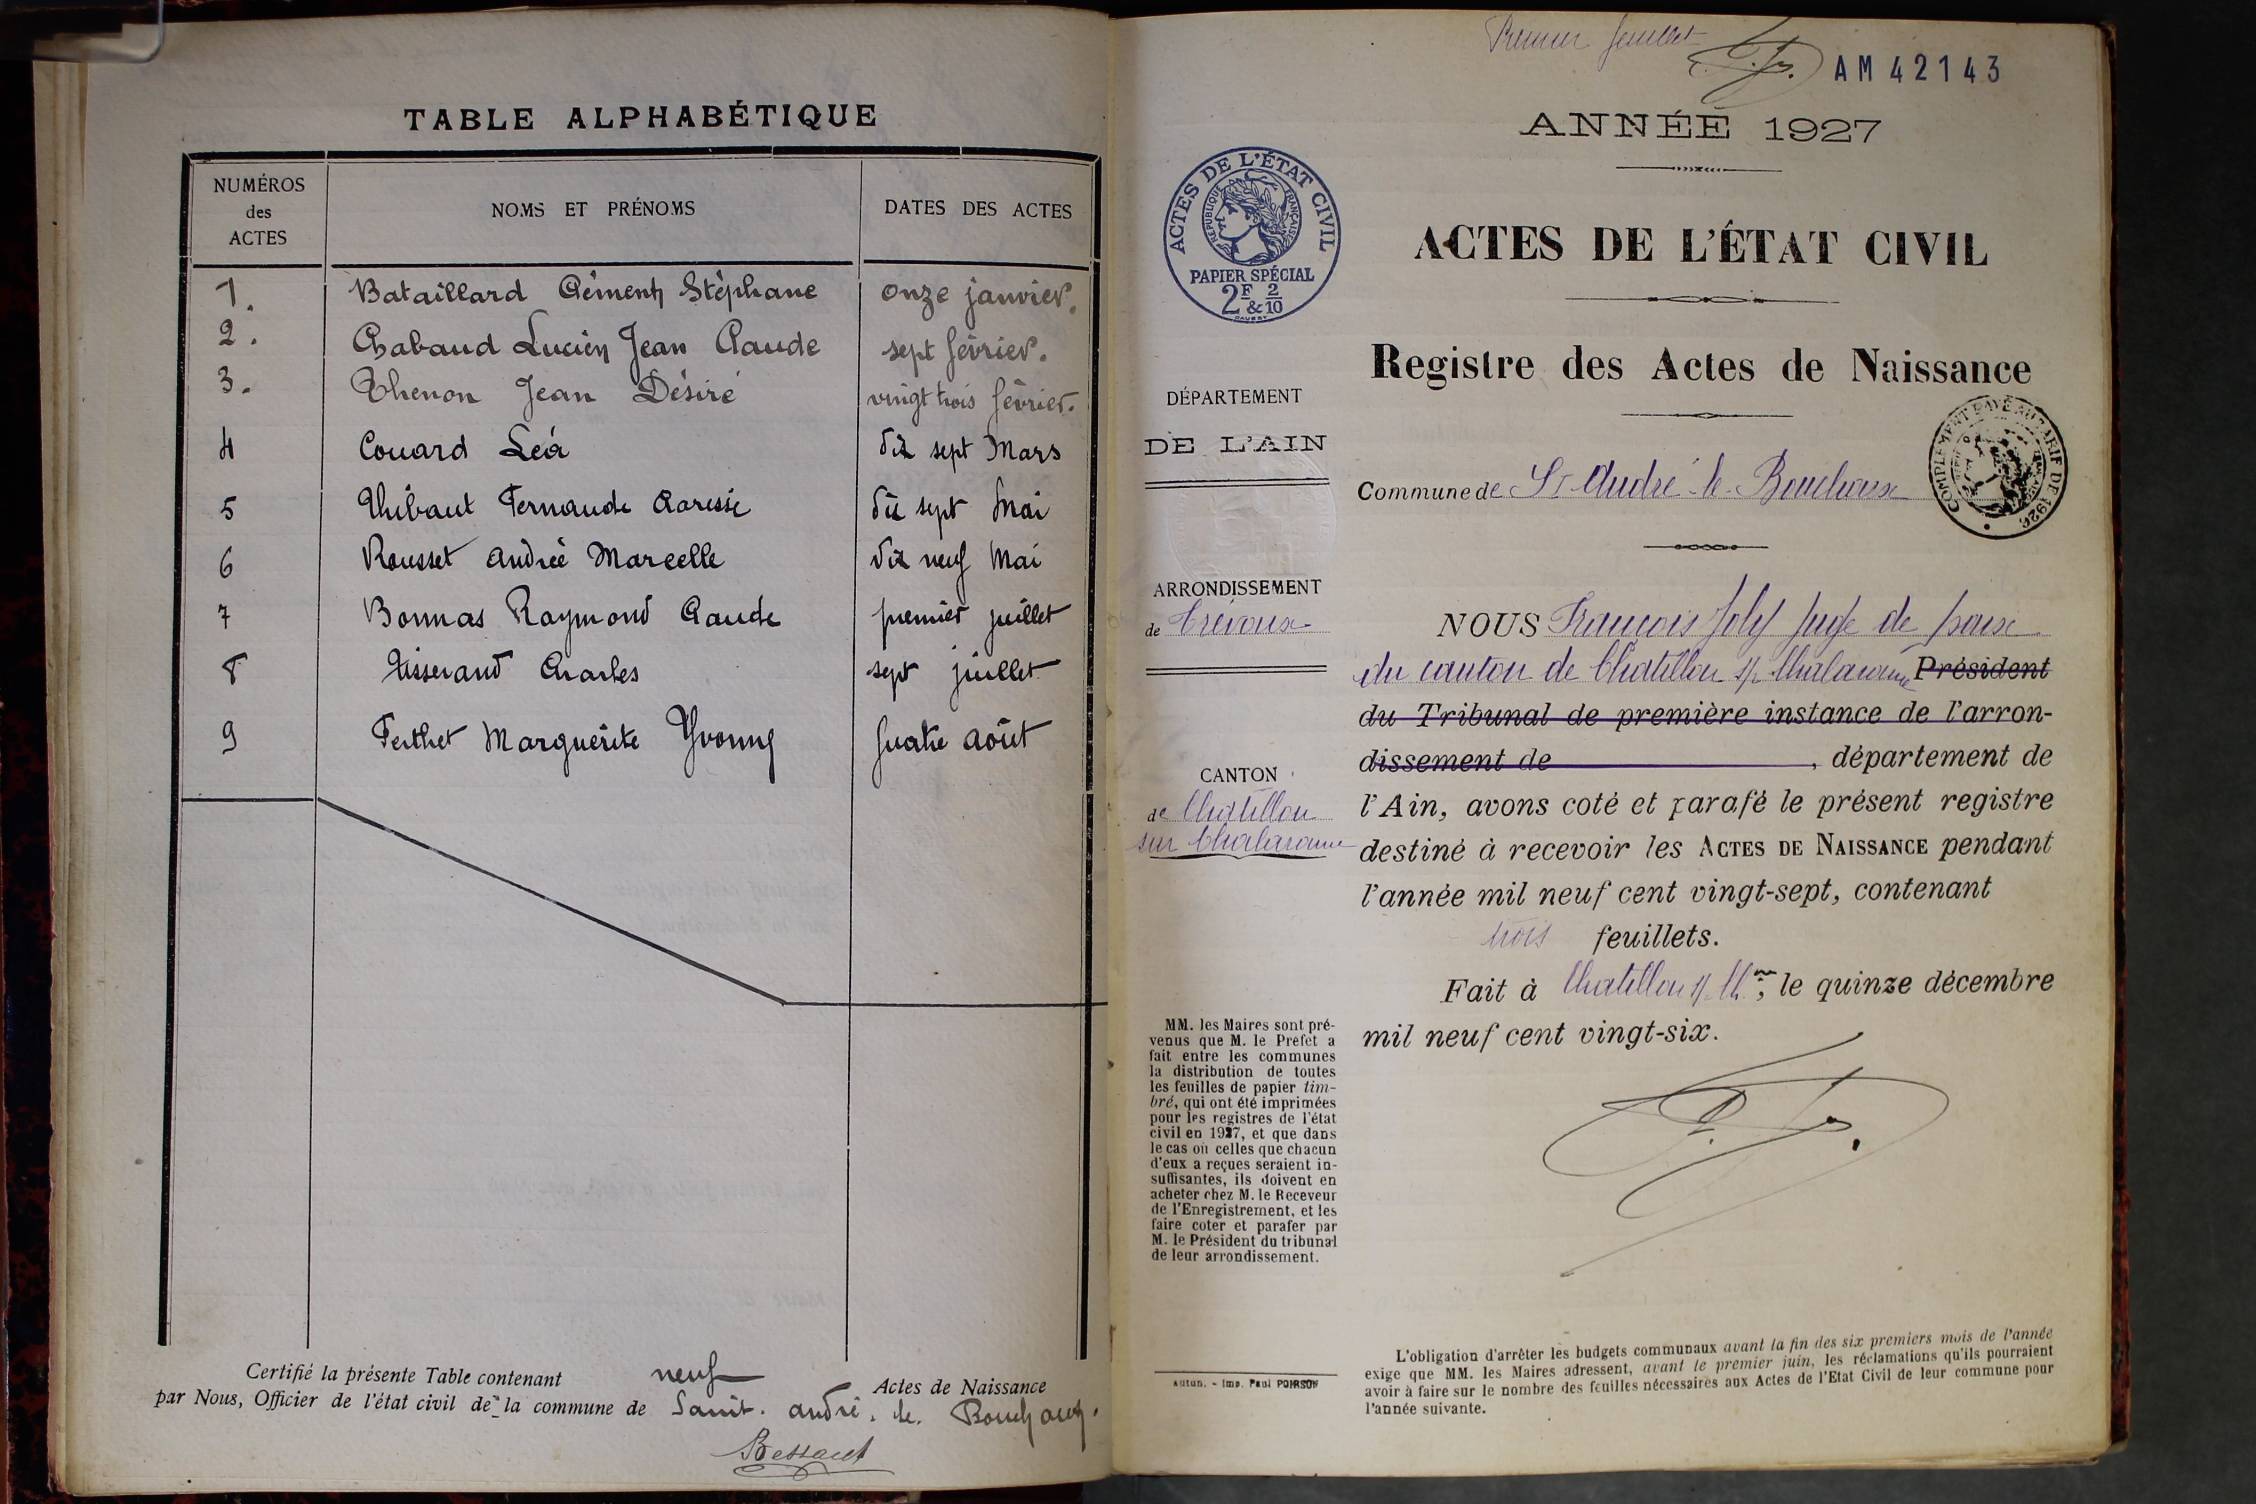 TABLE ALPHABÉTIQUE
NUMÉROS
des
ACTES
NOMS ET PRÉNOMS
DATES DES ACTES
1. Bataillard Clément Stéphane onze janvier.
2. Chabaud Lucien Jean Claude sept février.
3. Thenon Jean Désiré vingt trois février.
4 Couard Léa dix sept Mars
5 Thibaut Fernande dix sept Mai
6 Rousset Andrée Marcelle dix neuf Mai
7 Bonnas Raymond Claude premier juillet
8 Tisserand Charles sept juillet
9 Marguerite Yvonne quatre août
Certifié la présente Table contenant neuf Actes de Naissance
par Nous, Officier de l'état civil de la commune de Saint. André. le. Bouchoux.
Premier feuillet
AM 42143
ANNÉE 1927
ACTES DE L'ÉTAT CIVIL
RÉPUBLIQUE FRANÇAISE
PAPIER SPÉCIAL
2F & 2/10
ACTES DE L'ÉTAT CIVIL
Registre des Actes de Naissance
COMPLÉMENT PAYÉ AU TARIF DE 1926
DÉPARTEMENT
DE L'AIN
Commune de St André-le-Bouchoux
ARRONDISSEMENT
de Trévoux
CANTON
de Chatillon
sur Chalaronne
NOUS François Joly Juge de paix
du canton de Chatillon s/ Chalaronne Président
du Tribunal de première instance de l'arron-
dissement de , département de
l'Ain, avons coté et parafé le présent registre
destiné à recevoir les ACTES DE NAISSANCE pendant
l'année mil neuf cent vingt-sept, contenant
trois feuillets.
Fait à Chatillon s/ Ch.ne, le quinze décembre
mil neuf cent vingt-six.
MM. les Maires sont pré-
venus que M. le Préfet a
fait entre les communes
la distribution de toutes
les feuilles de papier tim-
bré, qui ont été imprimées
pour les registres de l'état
civil en 1927, et que dans
le cas où celles que chacun
d'eux a reçues seraient in-
suffisantes, ils doivent en
acheter chez M. le Receveur
de l'Enregistrement, et les
faire coter et parafer par
M. le Président du tribunal
de leur arrondissement.
Autun. - Imp. Paul POIRSON
L'obligation d'arrêter les budgets communaux avant la fin des six premiers mois de l'année
exige que MM. les Maires adressent, avant le premier juin, les réclamations qu'ils pourraient
avoir à faire sur le nombre des feuilles nécessaires aux Actes de l'Etat Civil de leur commune pour
l'année suivante.